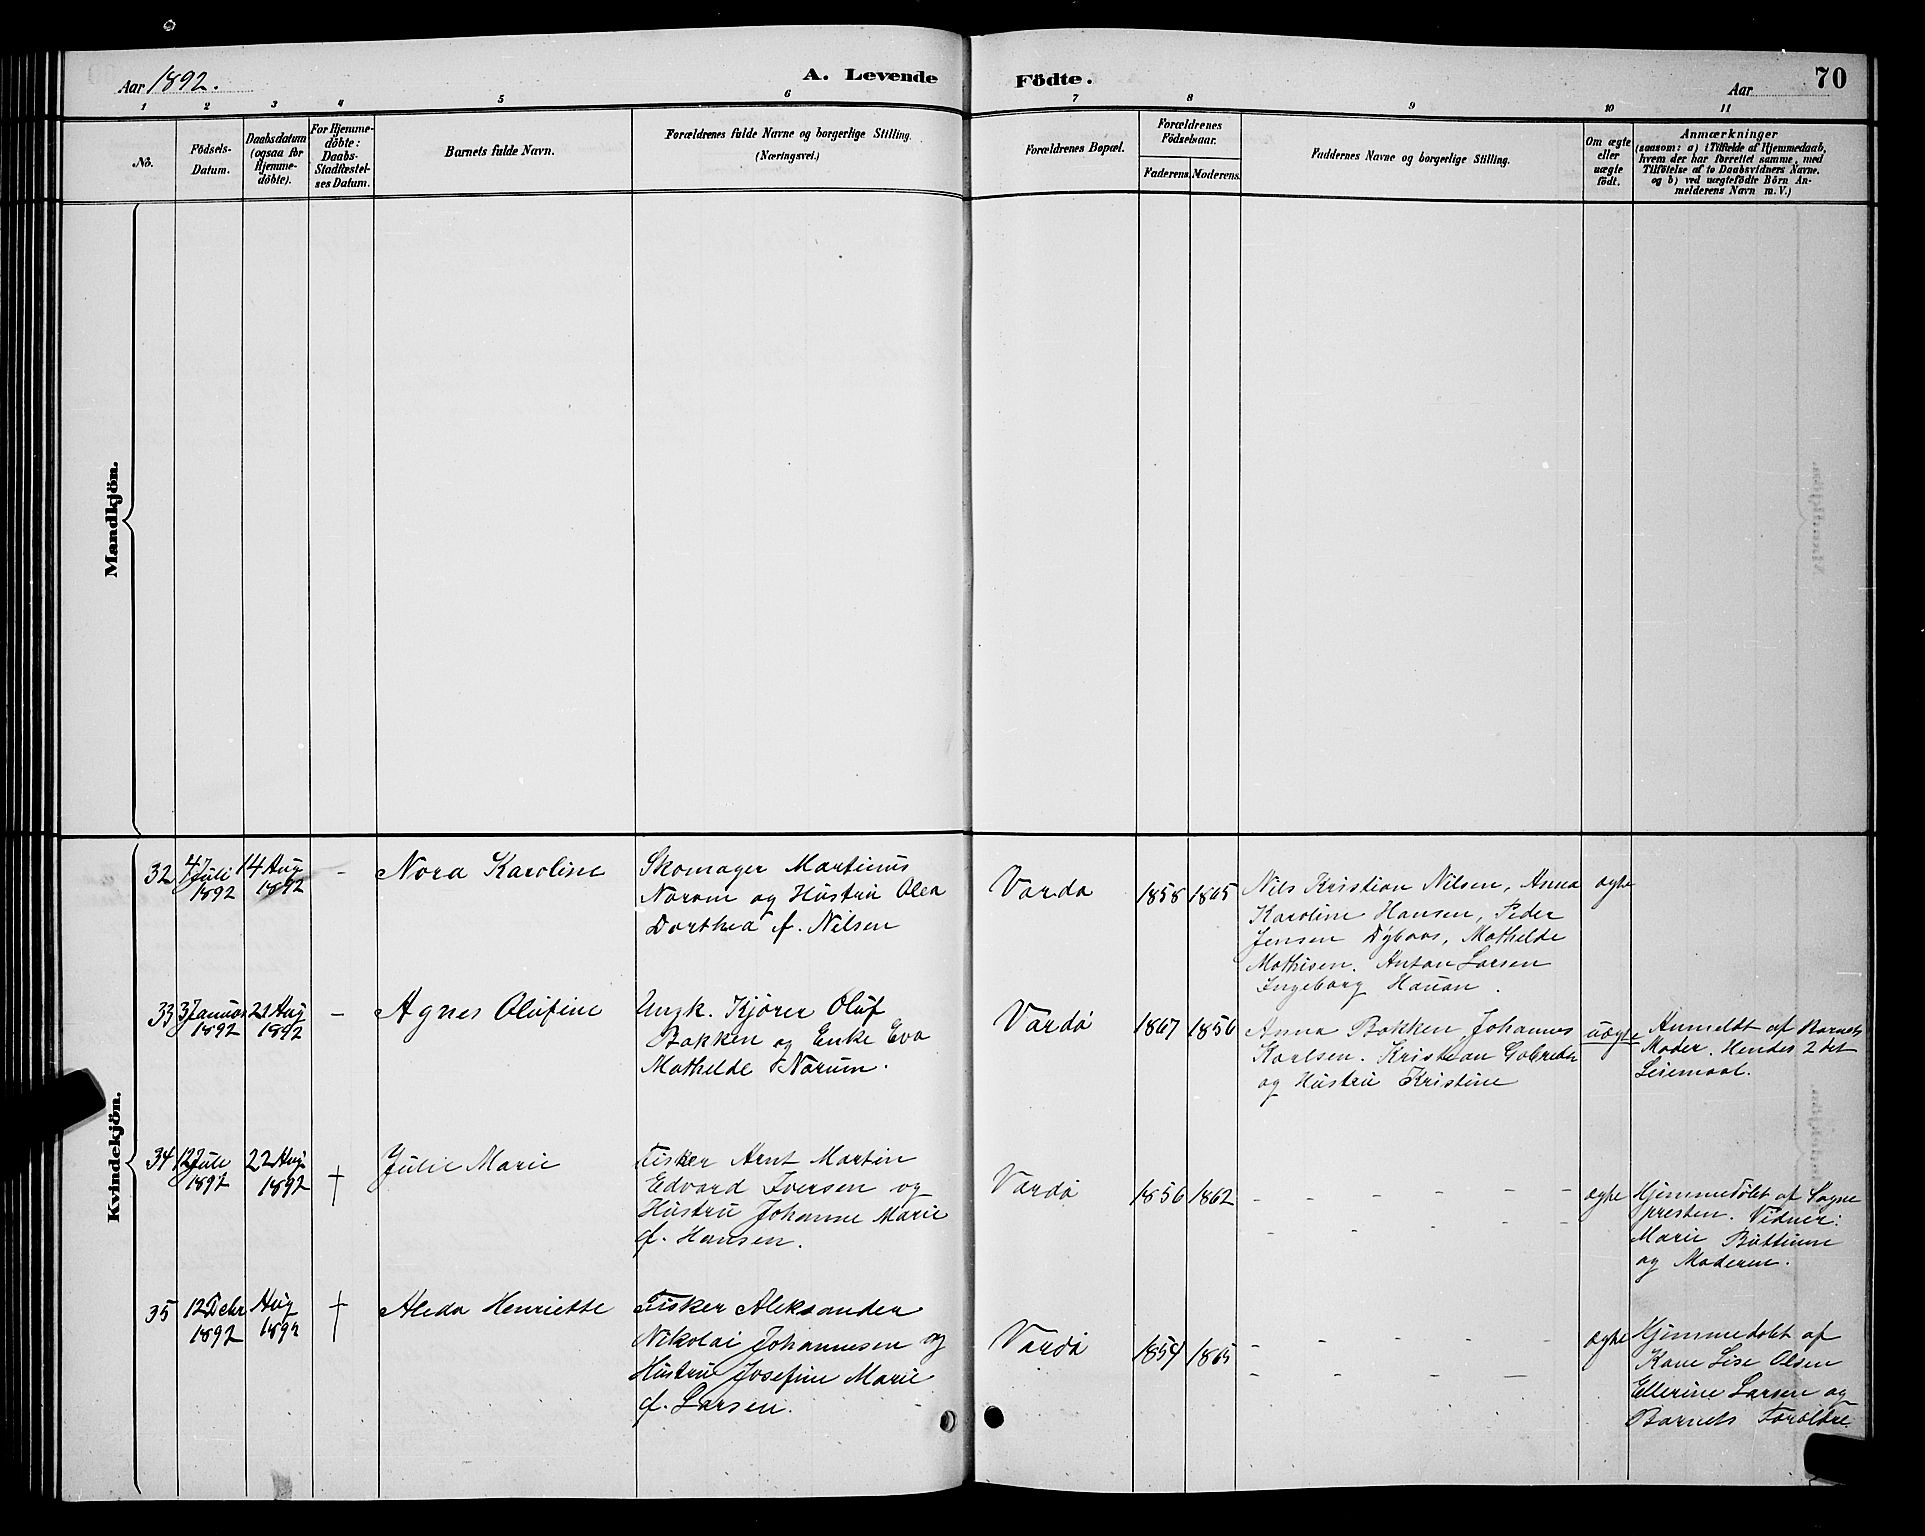 Aar 1892.
A. Levende Födte.
Aar
70
1 2 3 4 5 6 7 8 9 10 11
No.
Födsels-
Datum.
Daabsdatum
(ogsaa for
Hjemme-
döbte).
For Hjemme-
döbte:
Daabs-
Stadfæstel-
ses Datum.
Barnets fulde Navn.
Forældrenes fulde Navne og borgerlige Stilling.
(Næringsvei.)
Forældrenes Bopæl.
Forældrenes
Födselsaar.
Faderens. Moderens.
Faddernes Navne og borgerlige Stilling.
Om ægte
eller
uægte
födt.
Anmærkninger
(saasom: a) i Tilfælde af Hjemmedaab,
hvem der har forrettet samme, med
Tilföielse af to Daabsvidners Navne.
og b) ved uægtefödte Börn An-
melderens Navn m. V.)
Mandkjön.
Kvindekjön.
32
4 Juli
1892
14 Aug
1892
-
Nora Karoline
Skomager Martinus
Norum og Hustru Olea
Dorthea f. Nilsen
Vardø
1858
1865
Nils Kristian Nilsen, Anna
Karoline Hansen, Peder
Jensen Dybaas, Mathilde
Mathisen. Anton Larsen
Ingeborg Hauan.
ægte
33
3 Januar
1892
21 Aug
1892
-
Agnes Olufine
Ungk. Kjører Oluf
Bakken og Enke Eva
Mathilde Norum.
Vardø
1867
1856
Anna Bakken, Johannes
Karlsen. Kristian
og Hustru Kristine
uægte
Anmeldt af Barnets
Moder. Hendes 2det
Leiemaal.
34
12 Juli
1892
22 Aug
1892
†
Julie Marie
Fisker Arnt Martin
Edvard Iversen og
Hustru Johanne Marie
f. Hansen.
Vardø
1856
1862
- - - - - -
- - - -
ægte
Hjemmedøbt af Sogne
presten. Vidner:
Marie
og Moderen.
35
12
1892
Aug
1892
†
Aleda Henriette
Fisker Aleksander
Nikolai Johannesen og
Hustru Josefine Marie
f. Larsen.
Vardø
1854
1865
- - - - - -
- - - - -
ægte
Hjemmedøbt af
Kone Lise Olsen
Ellerine Larsen og
Barnets Forældre.